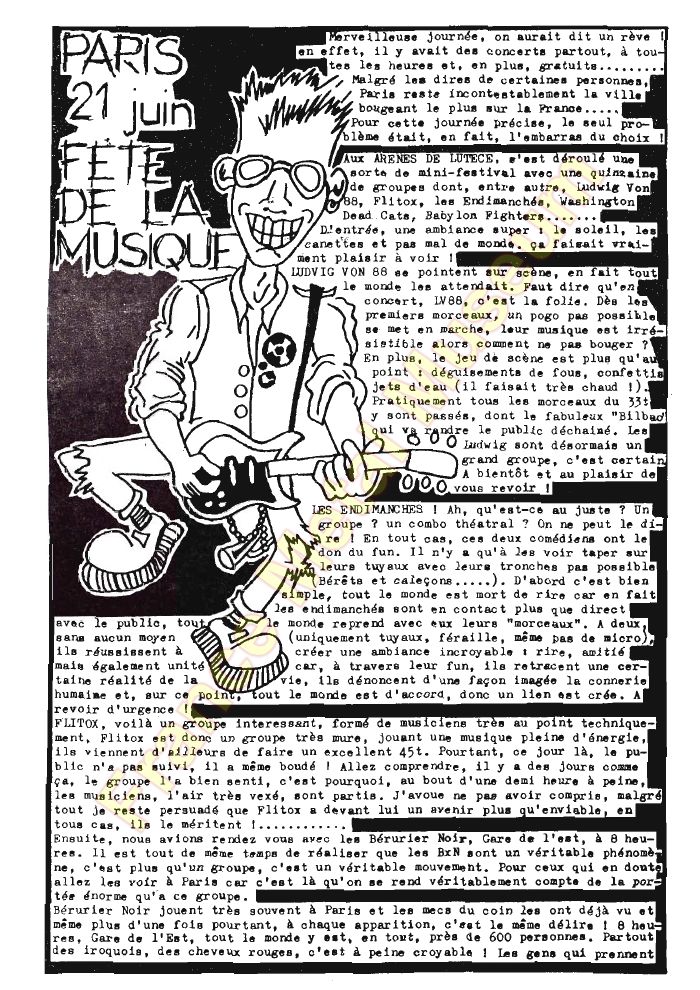 PARIS
21 juin
FÊTE
DE LA
MUSIQUE
Merveilleuse journée, on aurait dit un rêve !
en effet, il y avait des concerts partout, à tou-
tes les heures et, en plus, gratuits.........
Malgré les dires de certaines personnes,
Paris reste incontestablement la ville
bougeant le plus sur la France.....
Pour cette journée précise, le seul pro-
blème était, en fait, l'embarras du choix !
Aux ARENES DE LUTECE, s'est déroulé une
sorte de mini-festival avec une quinzaine
de groupes dont, entre autre, Ludwig Von
88, Flitox, les Endimanchés, Washington
Dead Cats, Babylon Fighters.......
D'entrée, une ambiance super : le soleil, les
canettes et pas mal de monde. ça faisait vrai-
ment plaisir à voir !
LUDVIG VON 88 se pointent sur scène, en fait tout
le monde les attendait. Faut dire qu'en
concert, LV88, c'est la folie. Dès les
premiers morceaux, un pogo pas possible
se met en marche, leur musique est irré-
sistible alors comment ne pas bouger ?
En plus, le jeu de scène est plus qu'au
point : déguisements de fous, confettis
jets d'eau (il faisait très chaud !).
Pratiquement tous les morceaux du 33t
y sont passés, dont le fabuleux "Bilbao"
qui va rendre le public déchainé. Les
Ludwig sont désormais un
grand groupe, c'est certain
A bientôt et au plaisir de
vous revoir !
LES ENDIMANCHES ! Ah, qu'est-ce au juste ? Un
groupe ? un combo théatral ? On ne peut le di-
re ! En tout cas, ces deux comédiens ont le
don du fun. Il n'y a qu'à les voir taper sur
leurs tuyaux avec leurs tronches pas possible
(Bérêts et caleçons.....). D'abord c'est bien
simple, tout le monde est mort de rire car en fait
les endimanchés sont en contact plus que direct
avec le public, tout le monde reprend avec eux leurs "morceaux". A deux,
sans aucun moyen (uniquement tuyaux, féraille, même pas de micro),
ils réussissent à créer une ambiance incroyable : rire, amitié
mais également unité car, à travers leur fun, ils retracent une cer-
taine réalité de la vie, ils dénoncent d'une façon imagée la connerie
humaine et, sur ce point, tout le monde est d'accord, donc un lien est crée. A
revoir d'urgence !
FLITOX, voilà un groupe interessant, formé de musiciens très au point technique-
ment, Flitox est donc un groupe très mure, jouant une musique pleine d'énergie,
ils viennent d'ailleurs de faire un excellent 45t. Pourtant, ce jour là, le pu-
blic n'a pas suivi, il a même boudé ! Allez comprendre, il y a des jours comme
ça, le groupe l'a bien senti, c'est pourquoi, au bout d'une demi heure à peine,
les musiciens, l'air très vexé, sont partis. J'avoue ne pas avoir compris, malgré
tout je reste persuadé que Flitox a devant lui un avenir plus qu'enviable, en
tous cas, ils le méritent !............
Ensuite, nous avions rendez vous avec les Bérurier Noir, Gare de l'est, à 8 heu-
res. Il est tout de même temps de réaliser que les BxN sont un véritable phénomè-
ne, c'est plus qu'un groupe, c'est un véritable mouvement. Pour ceux qui en doute
allez les voir à Paris car c'est là qu'on se rend véritablement compte de la por-
tés énorme qu'a ce groupe.
Bérurier Noir jouent très souvent à Paris et les mecs du coin les ont déjà vu et
même plus d'une fois pourtant, à chaque apparition, c'est le même délire ! 8 heu-
res, Gare de l'Est, tout le monde y est, en tout, près de 600 personnes. Partout
des iroquois, des cheveux rouges, c'est à peine croyable ! Les gens qui prennent